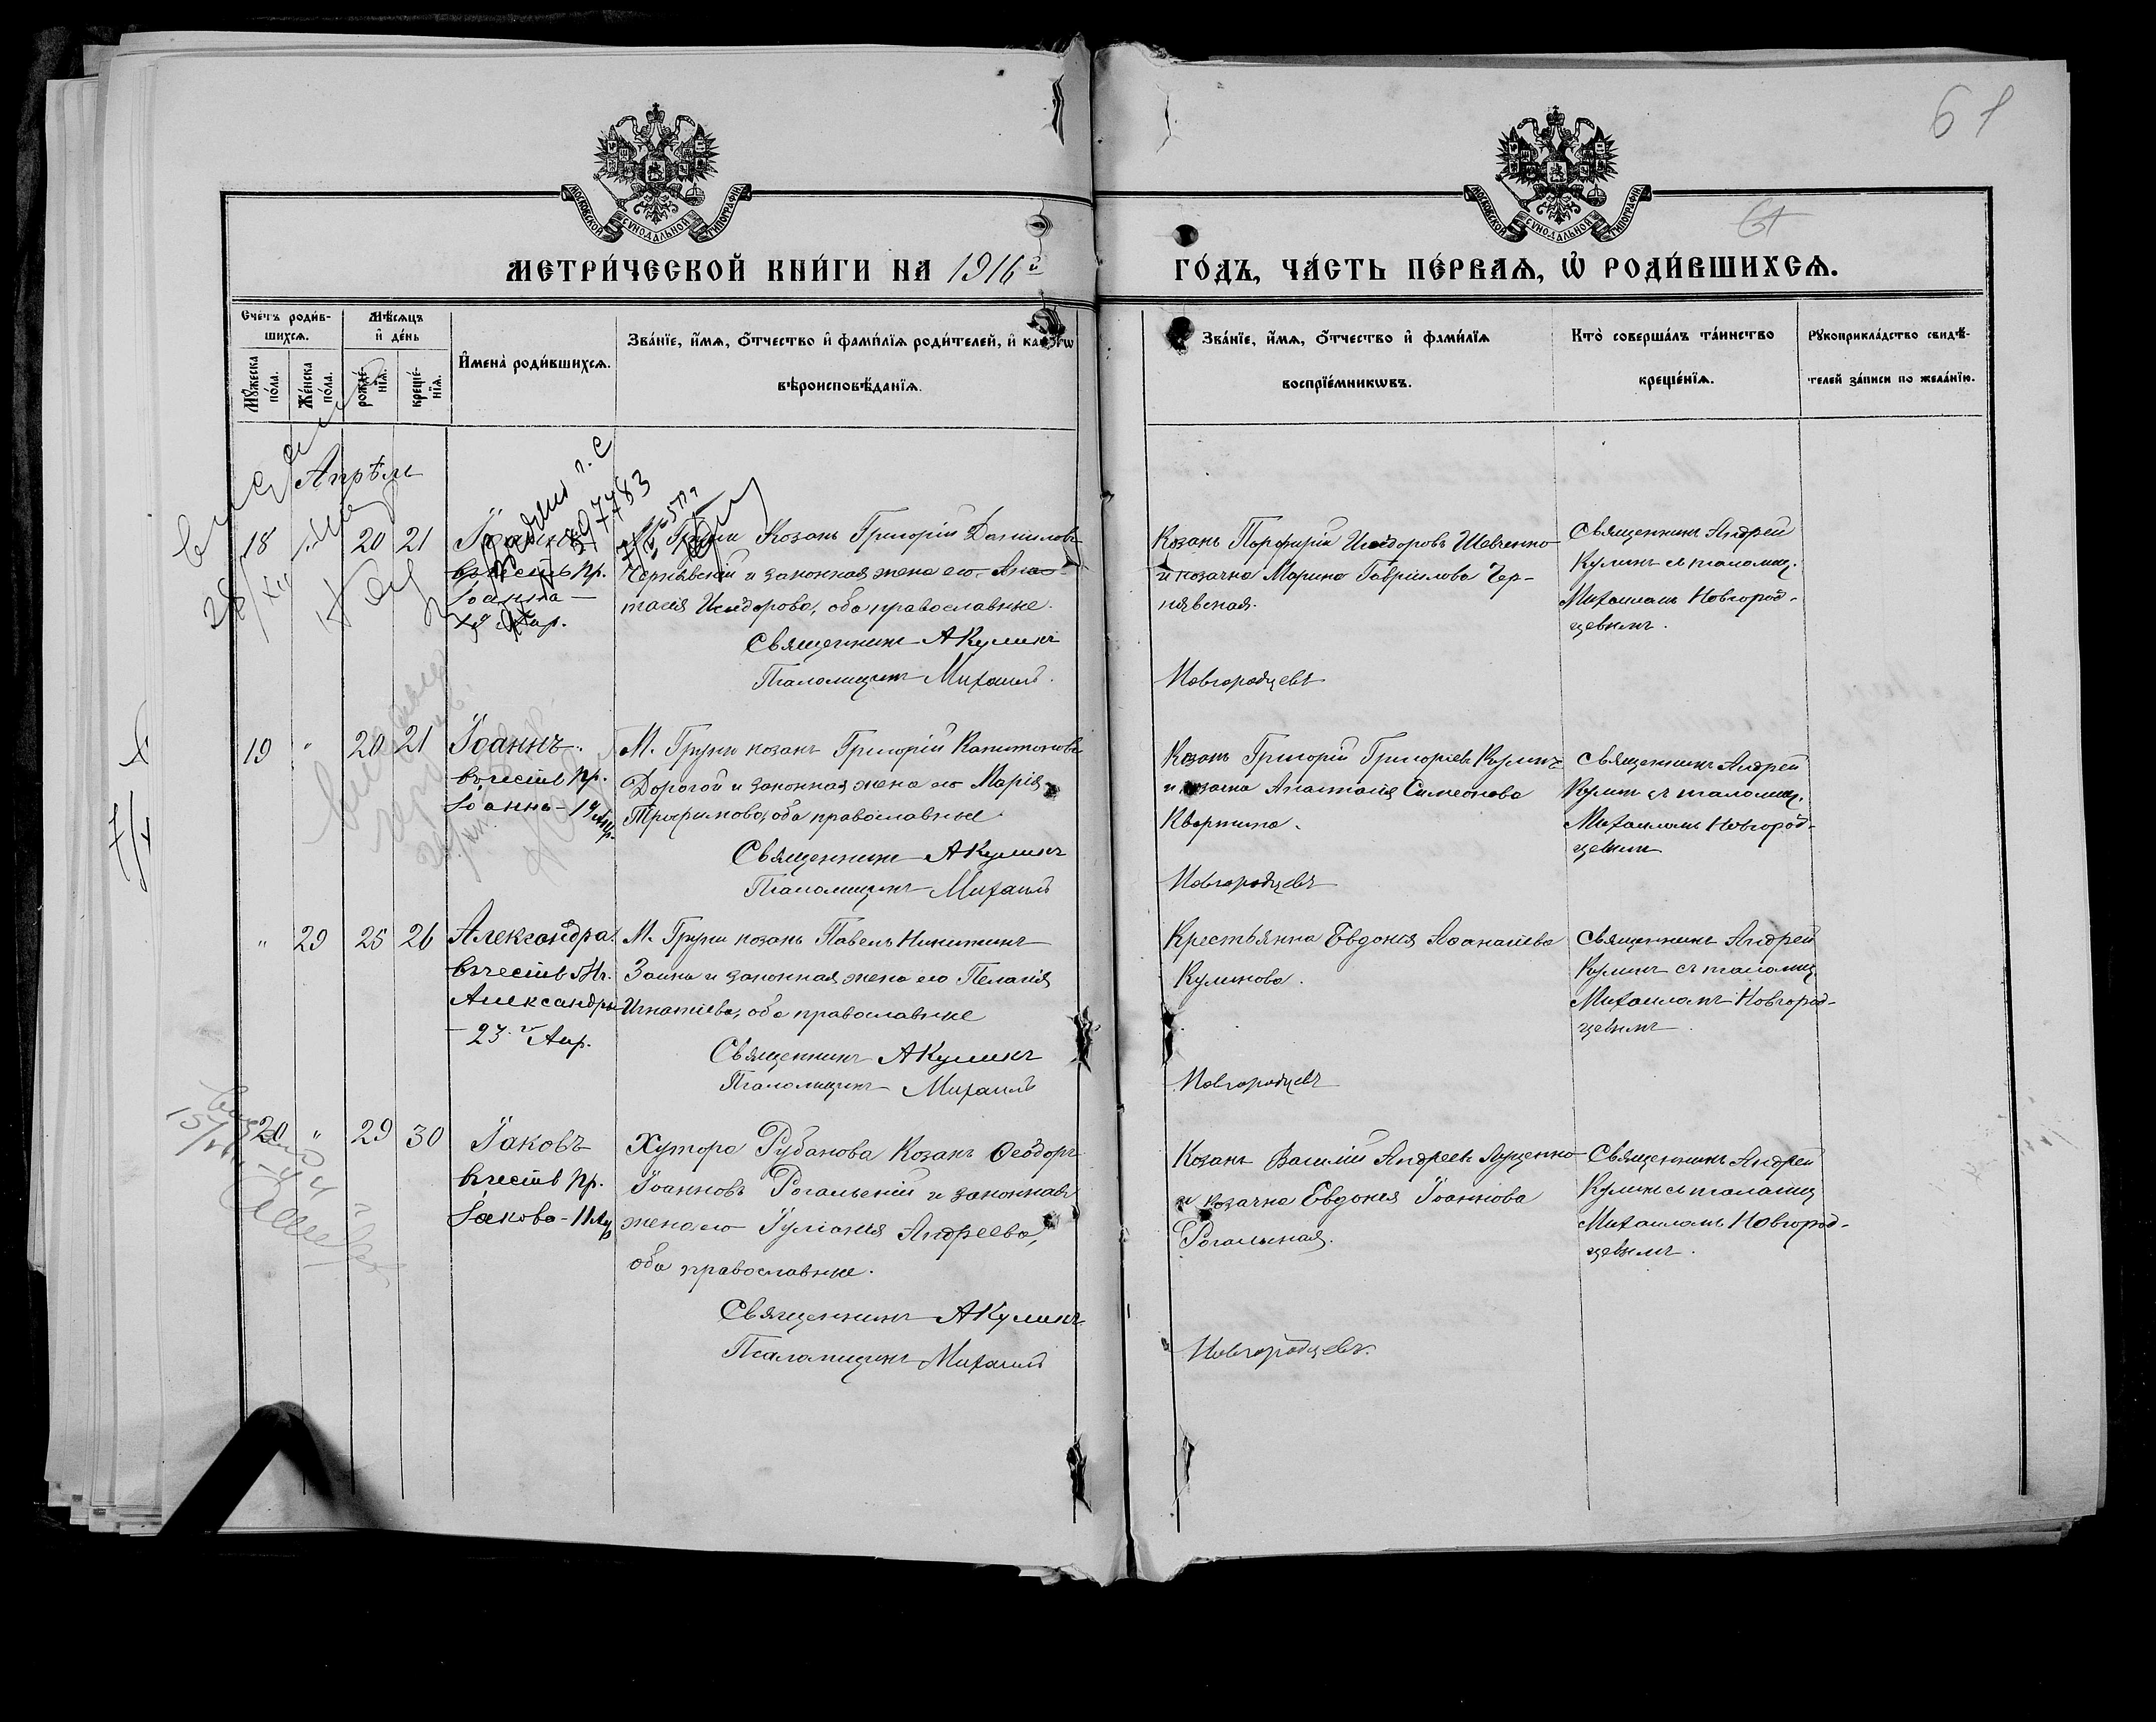 61
МОСКОВСКОЙ СУНОДАЛЬНОЙ ТИПОГРАФІИ
МОСКОВСКОЙ СУНОДАЛЬНОЙ ТИПОГРАФІИ
МЕТРИ́ЧЕСКОЙ КНИ́ГИ НА 1916й
ГО́ДЪ, ЧА́СТЬ ПЕ́РВАѦ, Ѡ҆ РОДИ́ВШИХСѦ.
Сче́тъ роди́в-
шихсѧ.
Мѣ́сѧцъ
и҆ де́нь
Мꙋ́жеска по́ла.
Же́нска по́ла.
рожде́-нїѧ.
креще́-нїѧ.
И҆мена̀ роди́вшихсѧ.
Зва́нїе, и҆́мѧ, ѻ҆́тчество и҆ фами́лїѧ роди́телей, и҆ како́гѡ
вѣроисповѣ́данїѧ.
Зва́нїе, и҆́мѧ, ѻ҆́тчество и҆ фами́лїѧ
воспрїе́мникѡвъ.
Кто̀ соверша́лъ та́инство
креще́нїѧ.
Рꙋкоприкла́дство свидѣ́-
телей за́писи по жела́нїю.
Апрѣль
18 20 21
Козакъ Григорій Даніиловъ
Чернявскій и законная жена его Анас-
тасія Исидорова, оба православные.
Священникъ А Куликъ
Псаломщикъ Михаилъ
Козакъ Порфирій Исидоровъ Шевченко
и козачка Марина Гавріилова Чер-
нявская.
Новгородцевъ
Священникъ Андрей
Куликъ съ псаломщ.
Михаиломъ Новгород-
цевымъ.
19 " 20 21
Іоаннъ.
въ честь пр.
Іоанна - 19 Апр.
М. Груни козакъ Григорій Капитоновъ
Дорогой и законная жена его Марія
Трофимова, оба православные
Священникъ А Куликъ
Псаломщикъ Михаилъ
Козакъ Григорій Григорьевъ Куликъ
и козачка Анастасія Симеонова
Новгородцевъ
Священникъ Андрей
Куликъ съ псаломщ.
Михаиломъ Новгород-
цевымъ
" 29 25 26
Александра.
въ честь Мч.
Александры
- 23го Апр.
М. Груни козакъ Павелъ Никитинъ
Заика и законная жена его Пелагія
Игнатіева, оба православные
Священникъ А Куликъ
Псаломщикъ Михаилъ
Крестьянка Евдокія Аѳанасіева
Куликова.
Новгородцевъ
Священникъ Андрей
Куликъ съ псаломщ
Михаиломъ Новгород-
цевымъ
20 " 29 30
Іаковъ
въ честь пр.
Іакова - 11 Апр
Хутора Рубанова Козакъ Ѳеодоръ
Іоанновъ Рогальскій и законная
жена его Іуліанія Андреева,
оба православные.
Священникъ А Куликъ
Псаломщикъ Михаилъ
Козакъ Василій Андреевъ Луценко
и козачка Евдокія Іоаннова
Рогальская.
Новгородцевъ.
Священникъ Андрей
Куликъ съ псаломщ
Михаиломъ Новгород-
цевымъ.